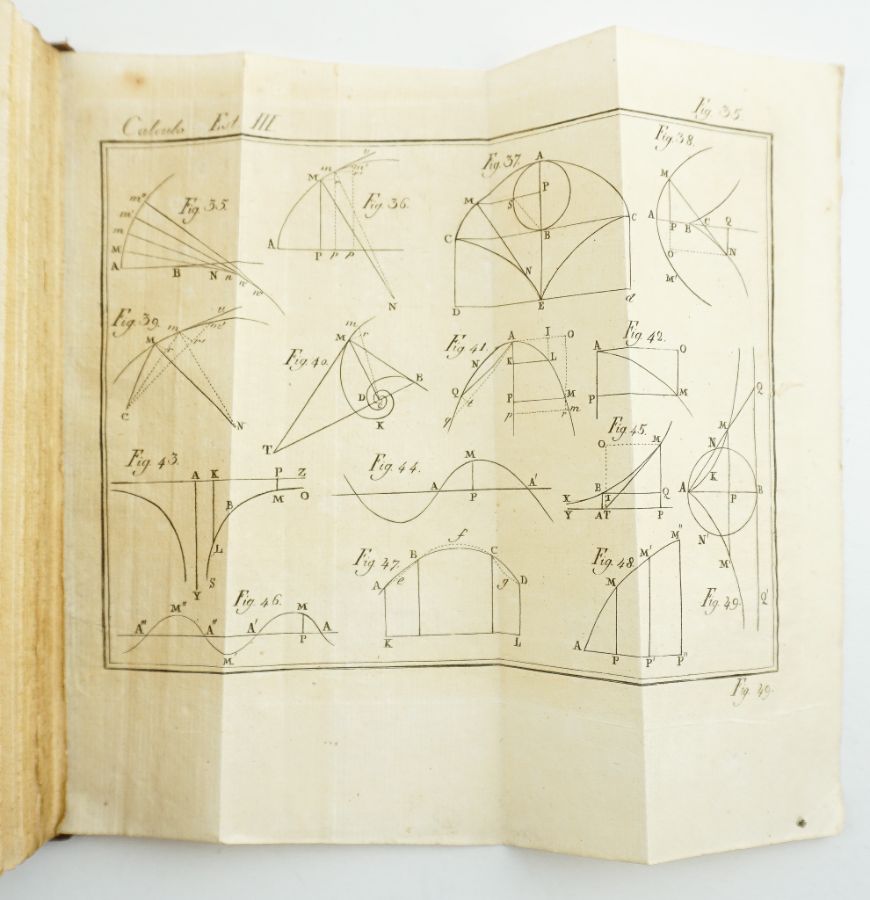 Calculo Est. III
Fig. 35.
Fig. 35.
m'' m' m M A B N n n' n''
Fig. 36.
M m A P p p N
Fig. 37.
A P S M B C C N D E d
Fig. 38.
M A P B C Q O N M'
Fig. 39.
M m r C N
Fig. 40.
m r M B D K T
Fig. 41.
A I O N K L Q t P M q p r m
Fig. 42.
A O P M
Fig. 43.
A K P Z M O B L S Y
Fig. 44.
M A A' P
Fig. 45.
O M X B I Q Y A T P
Q M N K A P B N' M' Q'
Fig. 49.
Fig. 46.
M'' M A''' A'' A' A P M'
Fig. 47.
f B C A e g D K L
Fig. 48.
M'' M' M A P P' P''
Fig. 49.